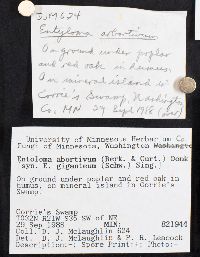 DJM 624
Entoloma abortivum
On ground under poplar
and red oak in humus,
on mineral island in
Corrie's Swamp, Washington
Co., MN 29 Sept 1988
University of Minnesota Herbarium Co.
Fungi of Minnesota, Washington
Entoloma abortivum (Berk. & Curt.) Donk
syn. E. giganteum (Schw.) Sing.
On ground under poplar and red oak in
humus, on mineral island in Corrie's
Swamp.
Corrie's Swamp
T032N R21W S35 SW of NE
29 Sep 1988 MIN: 821944
Coll. D. J. McLaughlin 624
Det. D. J. McLaughlin & P. R. Leacock
Description:- Spore Print:- Photo:-